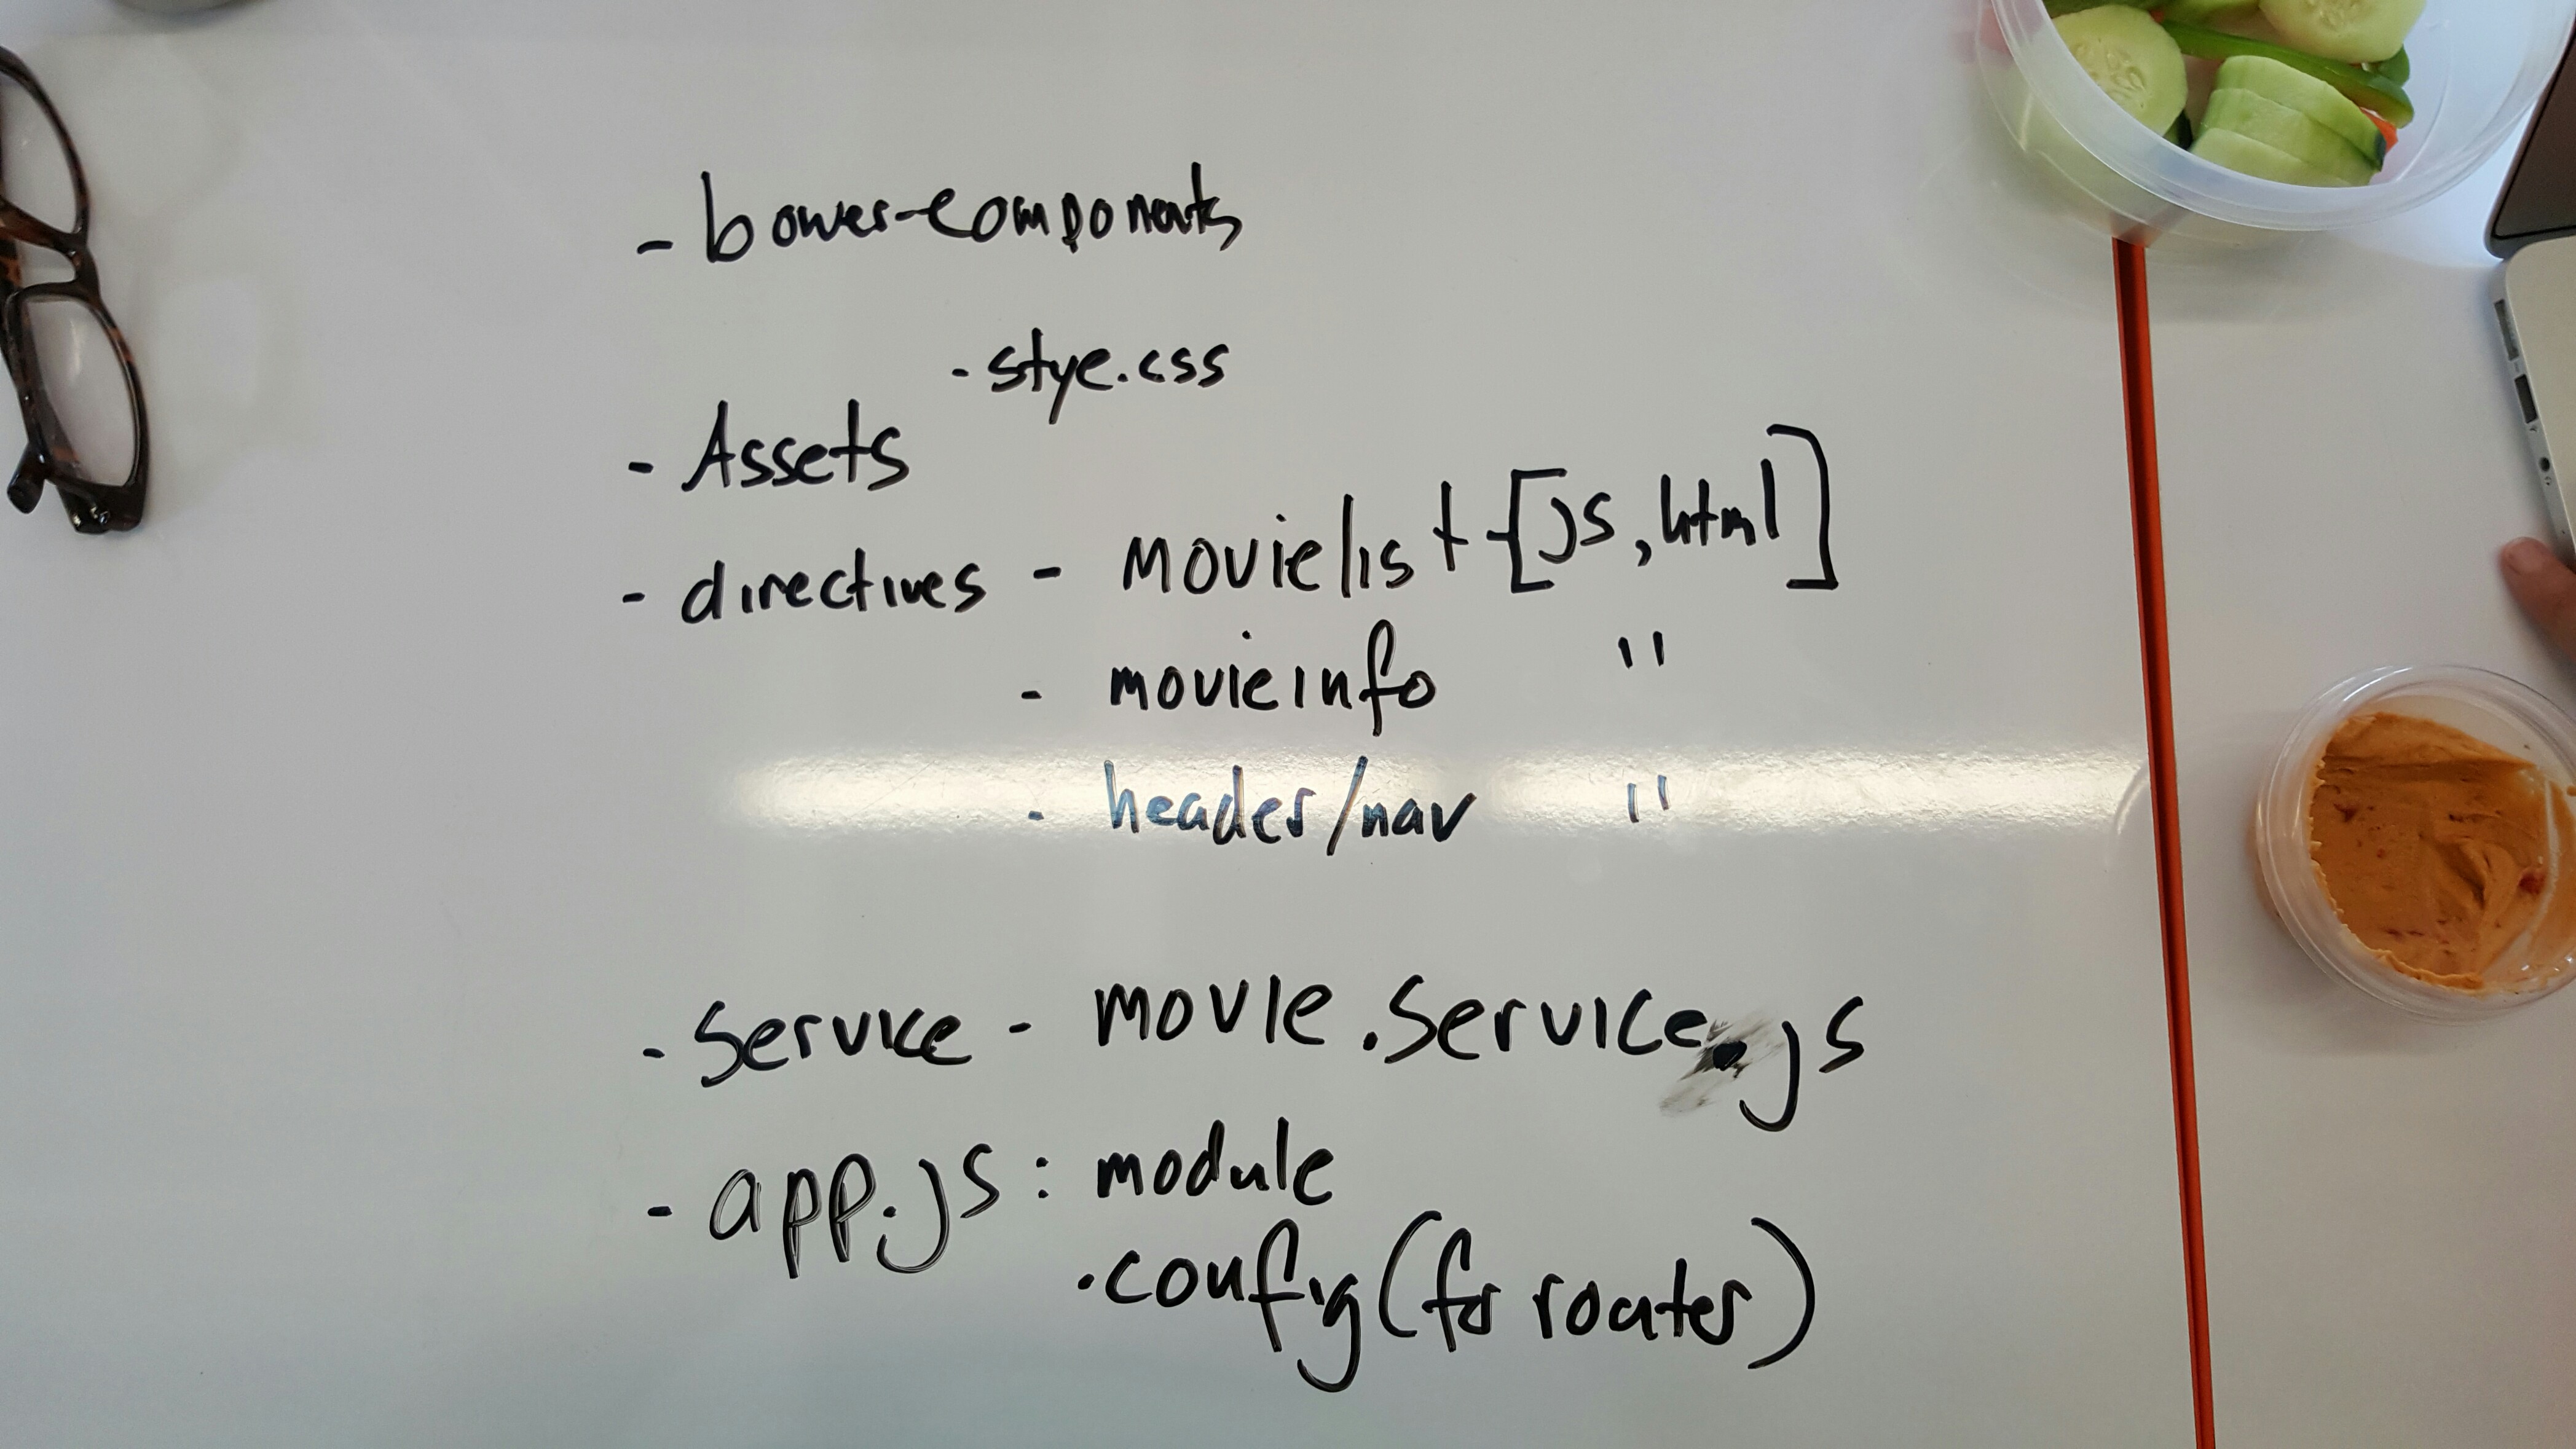 - bower-components
· stye.css
- Assets
- directives - movielist [js, html]
- movieinfo "
- header/nav "
- Service - movie.service.js
- app.js : module
.config (for router)